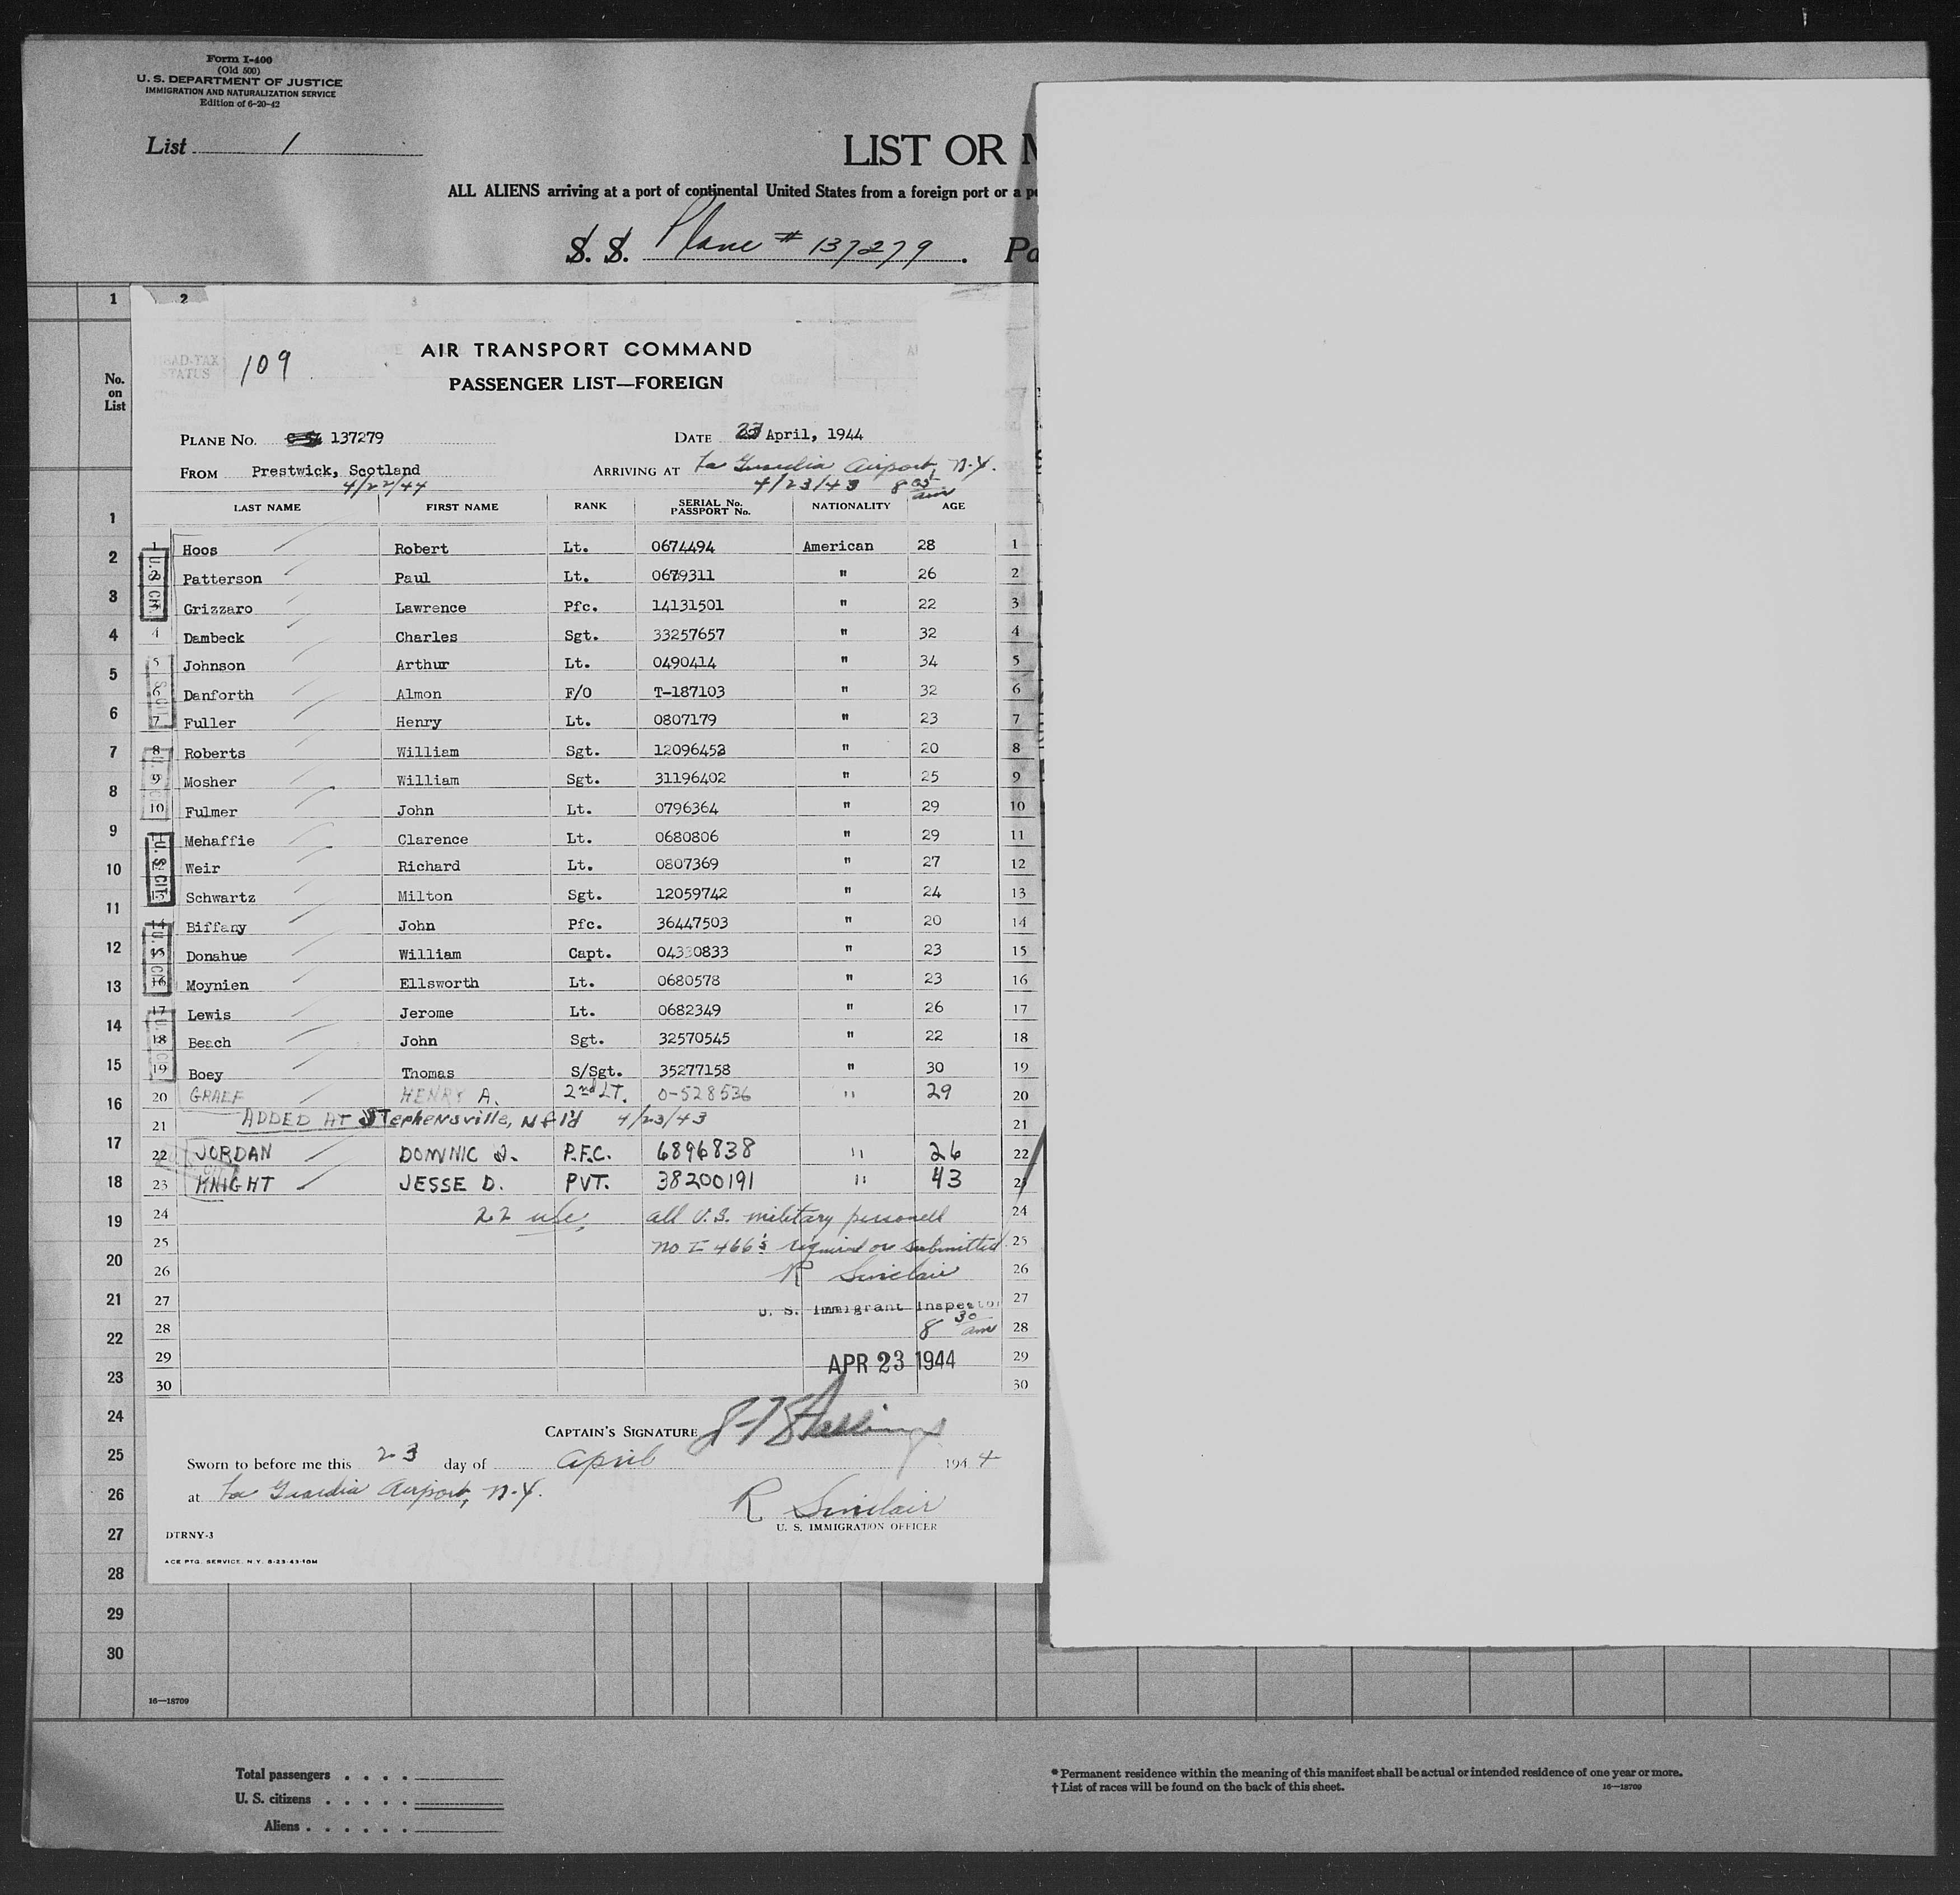 Form I-400
(Old 500)
U. S. DEPARTMENT OF JUSTICE
IMMIGRATION AND NATURALIZATION SERVICE
Edition of 6-20-42
List 1
LIST OR M
ALL ALIENS arriving at a port of continental United States from a foreign port or a po
S. S. Plane # 137279. Pa
1 2
No. on List
109
AIR TRANSPORT COMMAND
PASSENGER LIST—FOREIGN
PLANE No. 137279 DATE 23 April, 1944
FROM Prestwick, Scotland ARRIVING AT La Guardia Airport, N.Y.
4/22/44 4/23/43 8 05 am
LAST NAME FIRST NAME RANK SERIAL No. PASSPORT No. NATIONALITY AGE
1 Hoos Robert Lt. 0674494 American 28 1
2 Patterson Paul Lt. 0679311 " 26 2
3 Grizzaro Lawrence Pfc. 14131501 " 22 3
4 Dambeck Charles Sgt. 33257657 " 32 4
5 Johnson Arthur Lt. 0490414 " 34 5
6 Danforth Almon F/O T-187103 " 32 6
7 Fuller Henry Lt. 0807179 " 23 7
8 Roberts William Sgt. 12096452 " 20 8
9 Mosher William Sgt. 31196402 " 25 9
10 Fulmer John Lt. 0796364 " 29 10
11 Mehaffie Clarence Lt. 0680806 " 29 11
12 Weir Richard Lt. 0807369 " 27 12
13 Schwartz Milton Sgt. 12059742 " 24 13
14 Biffany John Pfc. 36447503 " 20 14
15 Donahue William Capt. 04330833 " 23 15
16 Moynien Ellsworth Lt. 0680578 " 23 16
17 Lewis Jerome Lt. 0682349 " 26 17
18 Beach John Sgt. 32570545 " 22 18
19 Boey Thomas S/Sgt. 35277158 " 30 19
20 GRAEF HENRY A. 2nd LT. O-528536 " 29 20
21 ADDED AT Stephensville, Nfl'd 4/23/43 21
22 JORDAN DOMINIC J. P.F.C. 6896838 " 26 22
23 KNIGHT JESSE D. PVT. 38200191 " 43 23
24 22 usc, all U.S. military personell 24
25 no I-466's required or submitted 25
26 R Sinclair 26
27 U. S. Immigrant Inspector 27
28 8 30 am 28
29 APR 23 1944 29
30 30
CAPTAIN'S SIGNATURE
Sworn to before me this 23 day of April 1944
at La Guardia Airport, N.Y. R Sinclair
U. S. IMMIGRATION OFFICER
DTRNY-3
ACE PTG. SERVICE, N.Y. 8-23-43-10M
1
2
3
4
5
6
7
8
9
10
11
12
13
14
15
16
17
18
19
20
21
22
23
24
25
26
27
28
29
30
16—18709
Total passengers . . . .
U. S. citizens . . . . .
Aliens . . . . . .
* Permanent residence within the meaning of this manifest shall be actual or intended residence of one year or more.
† List of races will be found on the back of this sheet. 16—18709